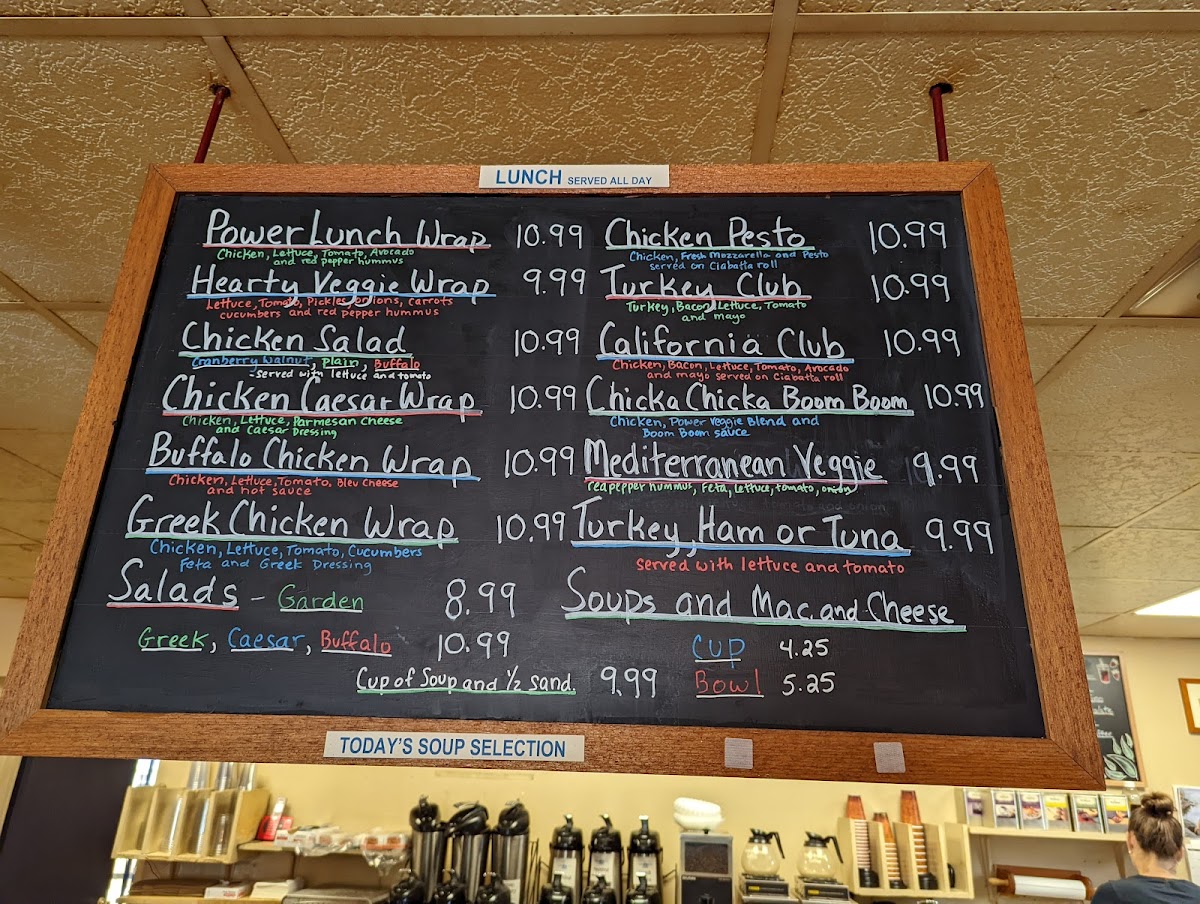 LUNCH SERVED ALL DAY
Power Lunch Wrap 10.99
Chicken, Lettuce, Tomato, Avocado
and red pepper hummus
Hearty Veggie Wrap 9.99
Lettuce, Tomato, Pickles, onions, carrots
cucumbers and red pepper hummus
Chicken Salad 10.99
Cranberry Walnut, Plain, Buffalo
-served with lettuce and tomato
Chicken Caesar Wrap 10.99
Chicken, Lettuce, Parmesan Cheese
and Caesar Dressing
Buffalo Chicken Wrap 10.99
Chicken, Lettuce, Tomato, Bleu Cheese
and hot sauce
Greek Chicken Wrap 10.99
Chicken, Lettuce, Tomato, Cucumbers
Feta and Greek Dressing
Salads - Garden 8.99
Greek, Caesar, Buffalo 10.99
Cup of Soup and 1/2 sand. 9.99
Chicken Pesto 10.99
Chicken, Fresh Mozzarella and Pesto
served on Ciabatta roll
Turkey Club 10.99
Turkey, Bacon, Lettuce, Tomato
and mayo
California Club 10.99
Chicken, Bacon, Lettuce, Tomato, Avocado
and mayo served on Ciabatta roll
Chicka Chicka Boom Boom 10.99
Chicken, Power Veggie Blend and
Boom Boom sauce
Mediterranean Veggie 9.99
red pepper hummus, Feta, lettuce, tomato, onion
Turkey, Ham or Tuna 9.99
served with lettuce and tomato
Soups and Mac and Cheese
Cup 4.25
Bowl 5.25
TODAY'S SOUP SELECTION